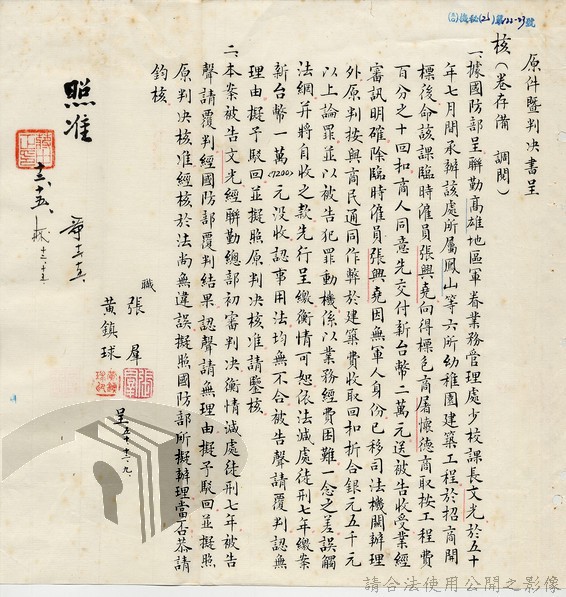 原件暨判決書呈
核(卷存備 調閱)
一、據國防部呈聯勤高雄地區軍眷業務管理處少校課長文光於五十
年七月間承辦該處所屬鳳山等六所幼稚園建築工程於招商開
標後命該課臨時僱員張興堯向得標包商屠懷德商取按工程費
百分之十回扣商人同意先交付新台幣二萬元送被告收受業經
審訊明確除臨時僱員張興堯因無軍人身份已移司法機關辦理
外原判按與商民通同作弊於建築費收取回扣折合銀元五千元
以上論罪並以被告犯罪動機係以業務經費困難一念之差誤觸
法網并將自收之款先行呈繳衡情可恕依法減處徒刑七年繳案
新台幣一萬(7200)元沒收認事用法均無不合被告聲請覆判認無
理由擬予駁回並擬照原判決核准請鑒核
二、本案被告文光經聯勤總部初審判決衡情減處徒刑七年被告
聲請覆判經國防部覆判結果認聲請無理由擬予駁回並擬照
原判決核准經核於法尚無違誤擬照國防部所擬辦理當否恭請
鈞核
職 張羣
黃鎮球 呈 五十、十二、九、
照准
十二、十五、
請合法使用公開之影像